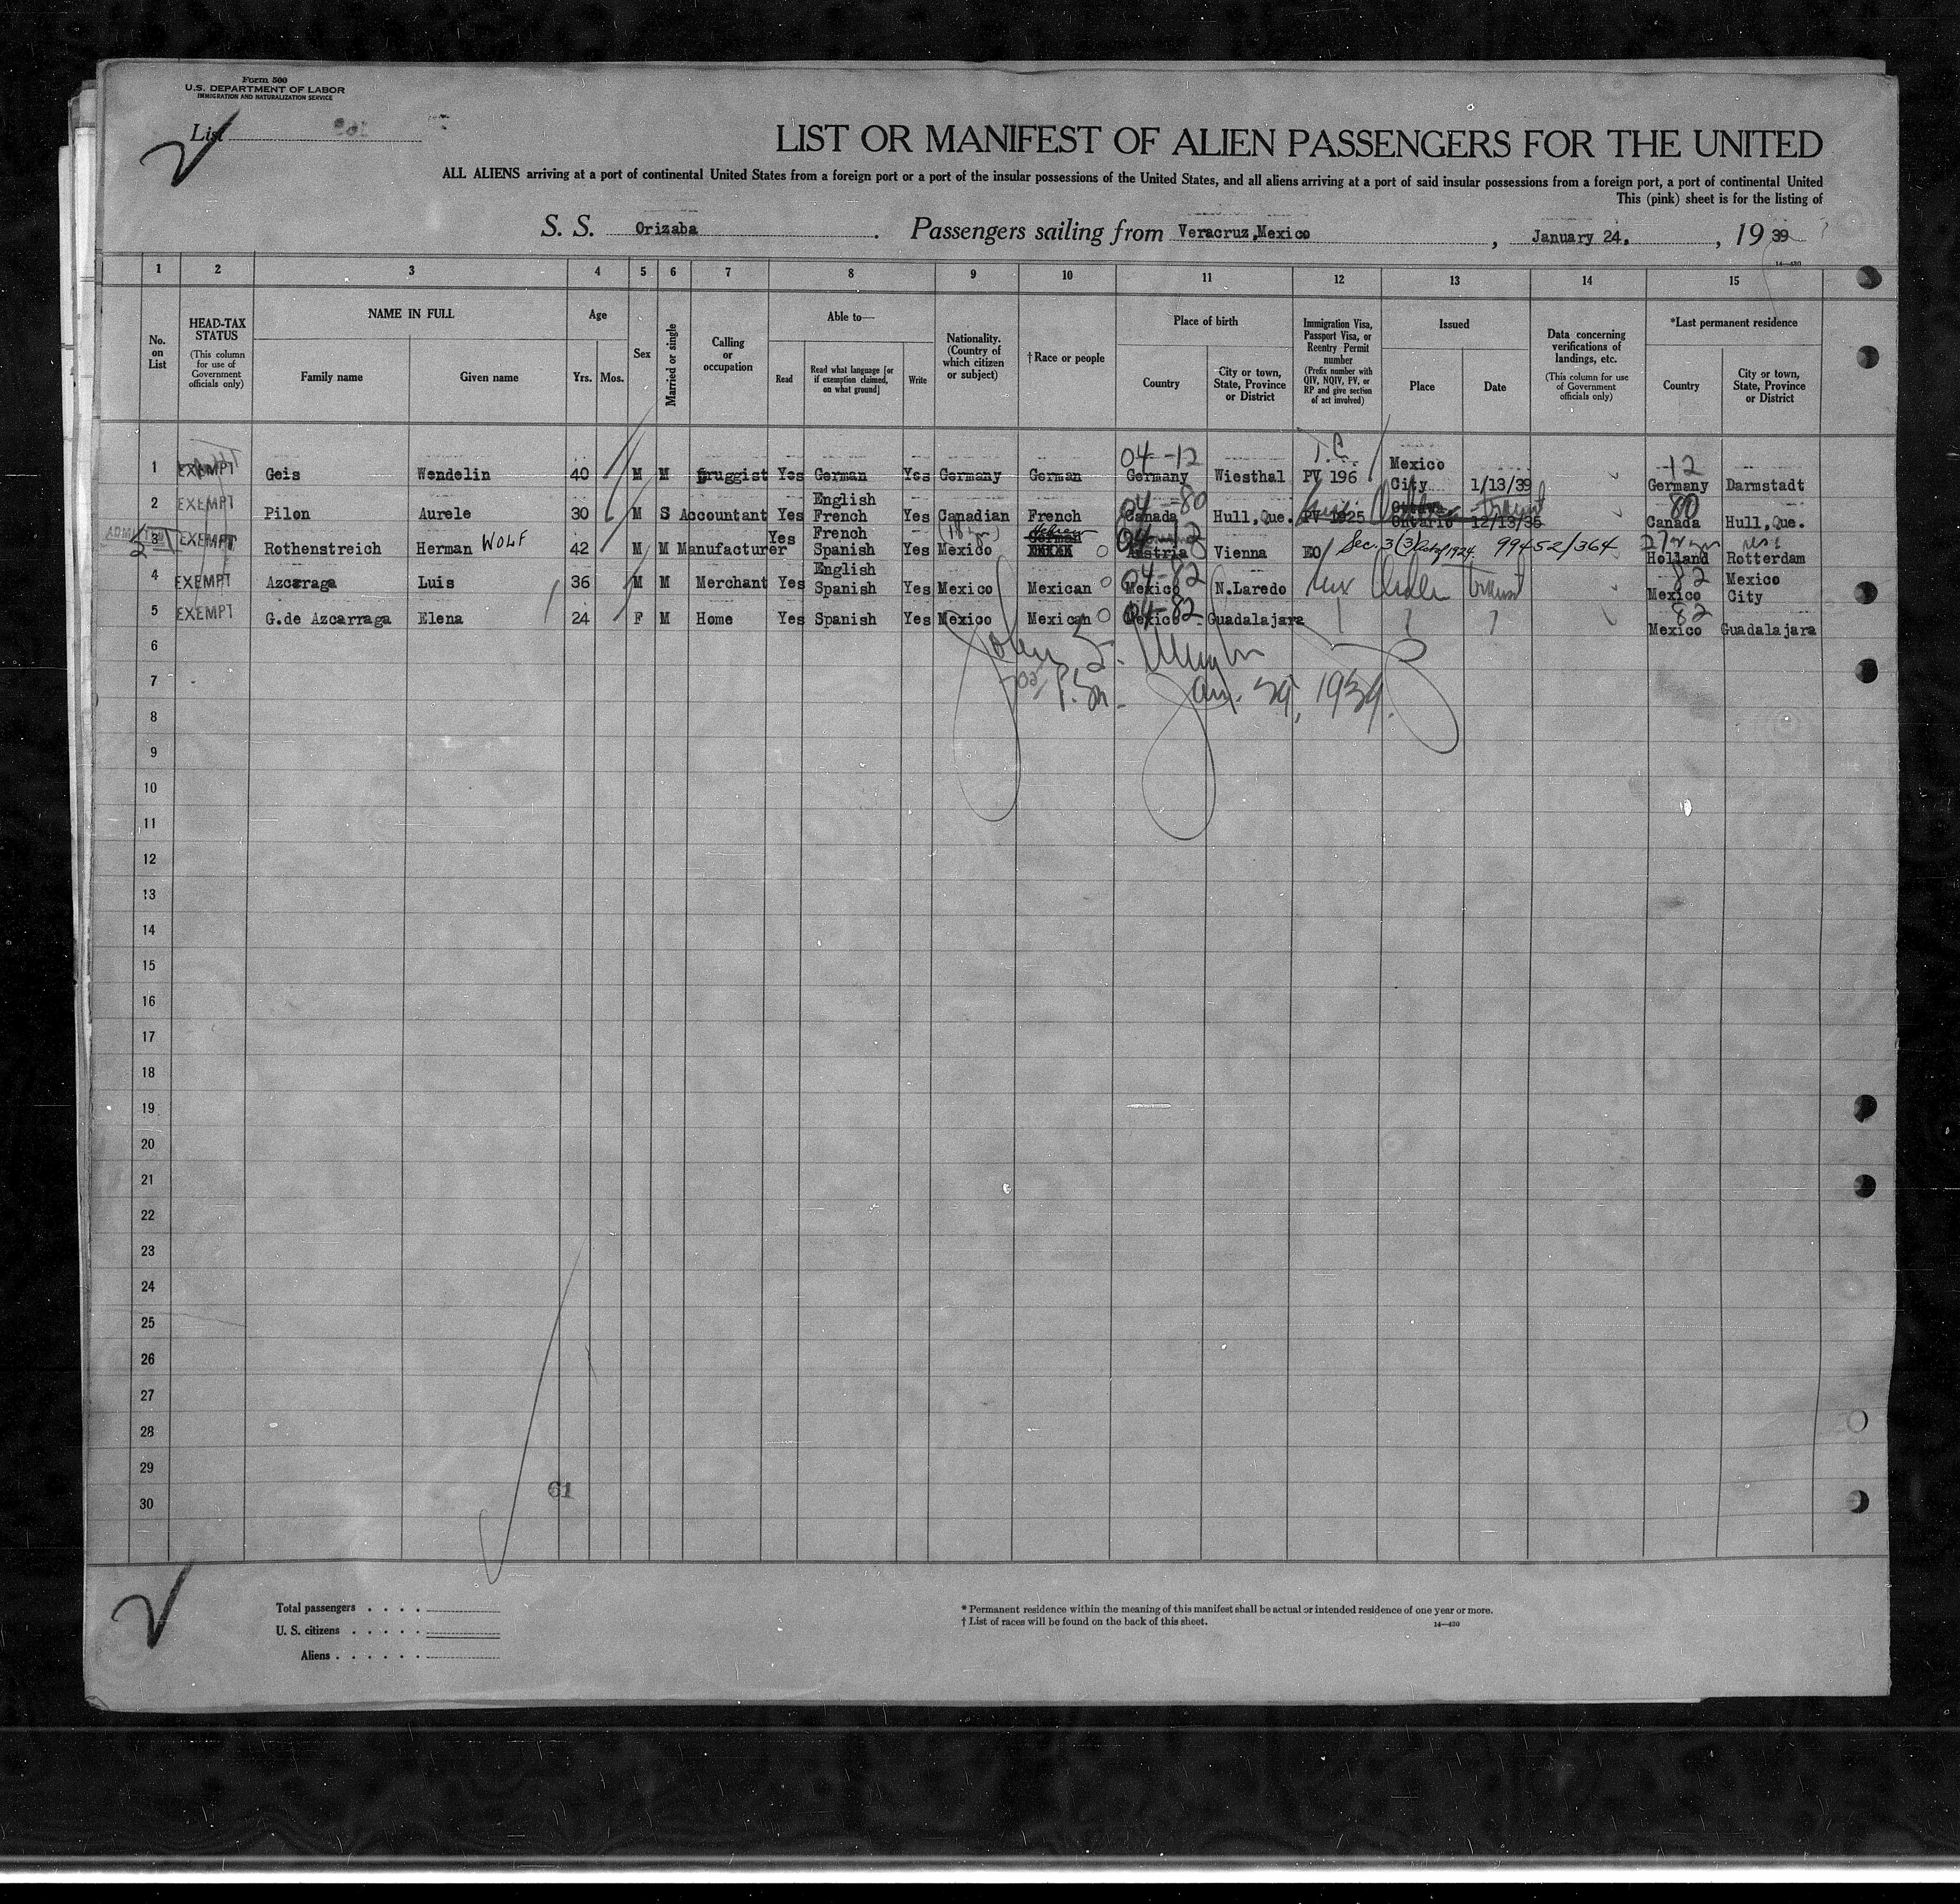 Form 500
U.S. DEPARTMENT OF LABOR
IMMIGRATION AND NATURALIZATION SERVICE
List
LIST OR MANIFEST OF ALIEN PASSENGERS FOR THE UNITED
ALL ALIENS arriving at a port of continental United States from a foreign port or a port of the insular possessions of the United States, and all aliens arriving at a port of said insular possessions from a foreign port, a port of continental United
This (pink) sheet is for the listing of
S. S. Orizaba. Passengers sailing from Veracruz,Mexico, January 24, , 19 39
14—430
1 2 3 4 5 6 7 8 9 10 11 12 13 14 15
No. on List
HEAD-TAX STATUS (This column for use of Government officials only)
NAME IN FULL
Family name Given name
Age
Yrs. Mos.
Sex
Married or single
Calling or occupation
Able to—
Read
Read what language [or if exemption claimed, on what ground]
Write
Nationality. (Country of which citizen or subject)
†Race or people
Place of birth
Country
City or town, State, Province or District
Immigration Visa, Passport Visa, or Reentry Permit number (Prefix number with QIV, NQIV, PV, or RP and give section of act involved)
Issued
Place Date
Data concerning verifications of landings, etc. (This column for use of Government officials only)
*Last permanent residence
Country
City or town, State, Province or District
1 EXEMPT Geis Wendelin 40 M M Druggist Yes German Yes Germany German 04-12 Germany Wiesthal T.C. PV 196 Mexico City 1/13/39 12 Germany Darmstadt
2 EXEMPT Pilon Aurele 30 M S Accountant Yes English French Yes Canadian French 04-80 Canada Hull,Que. PV 1825 Ontario 12/13/36 80 Canada Hull,Que.
3 EXEMPT Rothenstreich Herman WOLF 42 M M Manufacturer Yes French Spanish Yes Mexico Hebrew German 04-12 Austria Vienna EO Sec. 3(3) 1924 99452/364 Holland Rotterdam
4 EXEMPT Azcarraga Luis 36 M M Merchant Yes English Spanish Yes Mexico Mexican 04-82 Mexico N.Laredo Transit 82 Mexico Mexico City
5 EXEMPT G.de Azcarraga Elena 24 F M Home Yes Spanish Yes Mexico Mexican 04-82 Mexico Guadalajara 82 Mexico Guadalajara
6
7
Jan. 29, 1939.
8
9
10
11
12
13
14
15
16
17
18
19
20
21
22
23
24
25
26
27
28
29
61
30
Total passengers
U. S. citizens
Aliens
* Permanent residence within the meaning of this manifest shall be actual or intended residence of one year or more.
† List of races will be found on the back of this sheet.
14—430